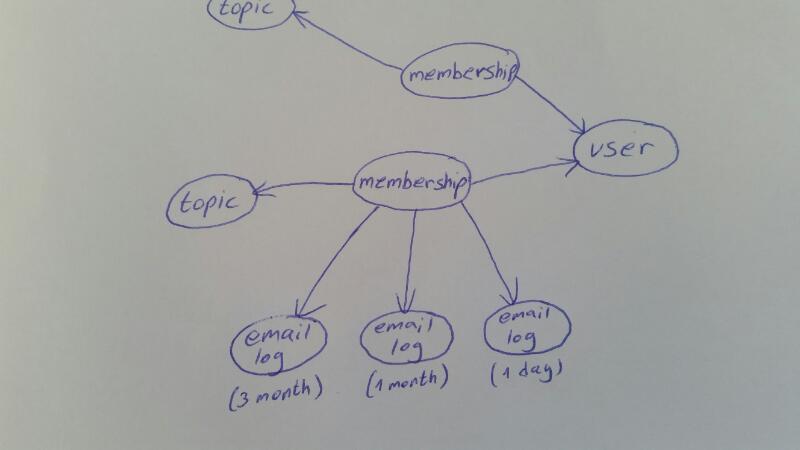 topic
membership
user
membership
topic
email
log
(3 month)
email
log
(1 month)
email
log
(1 day)